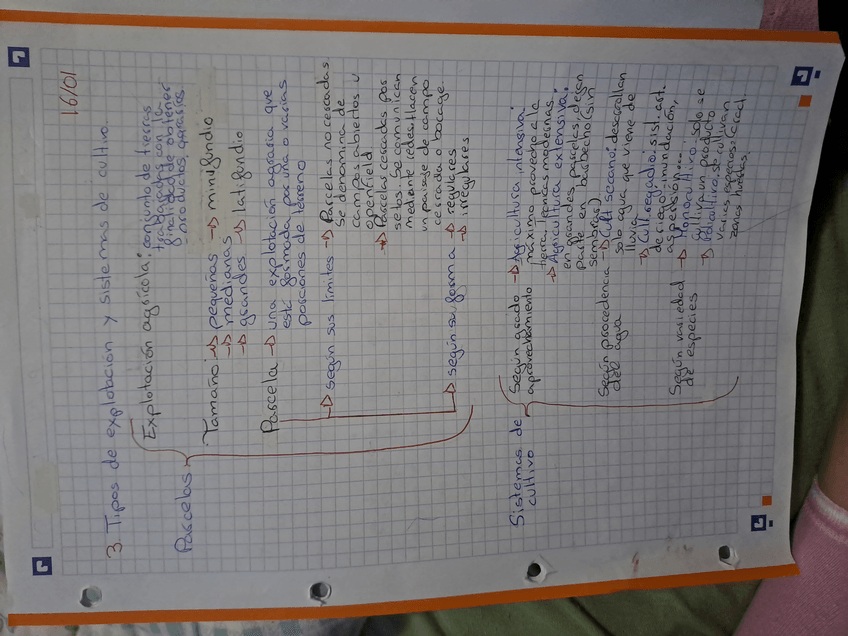 16/01
3. Tipos de explotación y sistemas de cultivo.
Parcelas
Explotación agrícola: conjunto de tierras
trabajadas con la
finalidad de obtener
productos agrarios
Tamaño: → pequeñas → minifundio
→ medianas
→ grandes → latifundio
Parcela → una explotación agraria que
está formada por una o varias
porciones de terreno
→ según sus límites → Parcelas no cercadas
se denomina de
campos abiertos u
openfield
→ Parcelas cercadas por
setos. Se comunican
mediante redes. Hacen
un paisaje de campo
cerrado o bocage.
→ según su forma → regulares
→ irregulares
Sistemas de
cultivo
Según grado
aprovechamiento
→ Agricultura intensiva:
máximo provecho a la
tierra, técnicas modernas.
→ Agricultura extensiva:
en grandes parcelas, dejan
parte en barbecho (sin
sembrar)
Según procedencia
del agua
→ Cult secano: desarrollan
solo agua que viene de
lluvia
→ Cult regadío: sist. art.
de riego: inundación,
aspersión...
Según variedad
de especies
→ Monocultivo: solo se
cultiva un producto
→ Policultivo: se cultivan
varias especies
zonas húmedas.